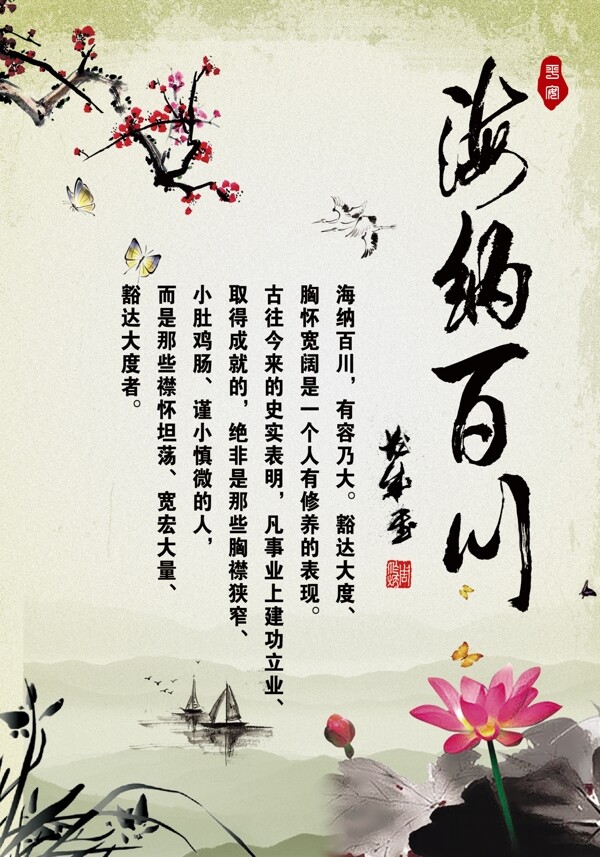 海纳百川
平安
海纳百川，有容乃大。豁达大度、
胸怀宽阔是一个人有修养的表现。
古往今来的史实表明，凡事业上建功立业、
取得成就的，绝非是那些胸襟狭窄、
小肚鸡肠、谨小慎微的人，
而是那些襟怀坦荡、宽宏大量、
豁达大度者。